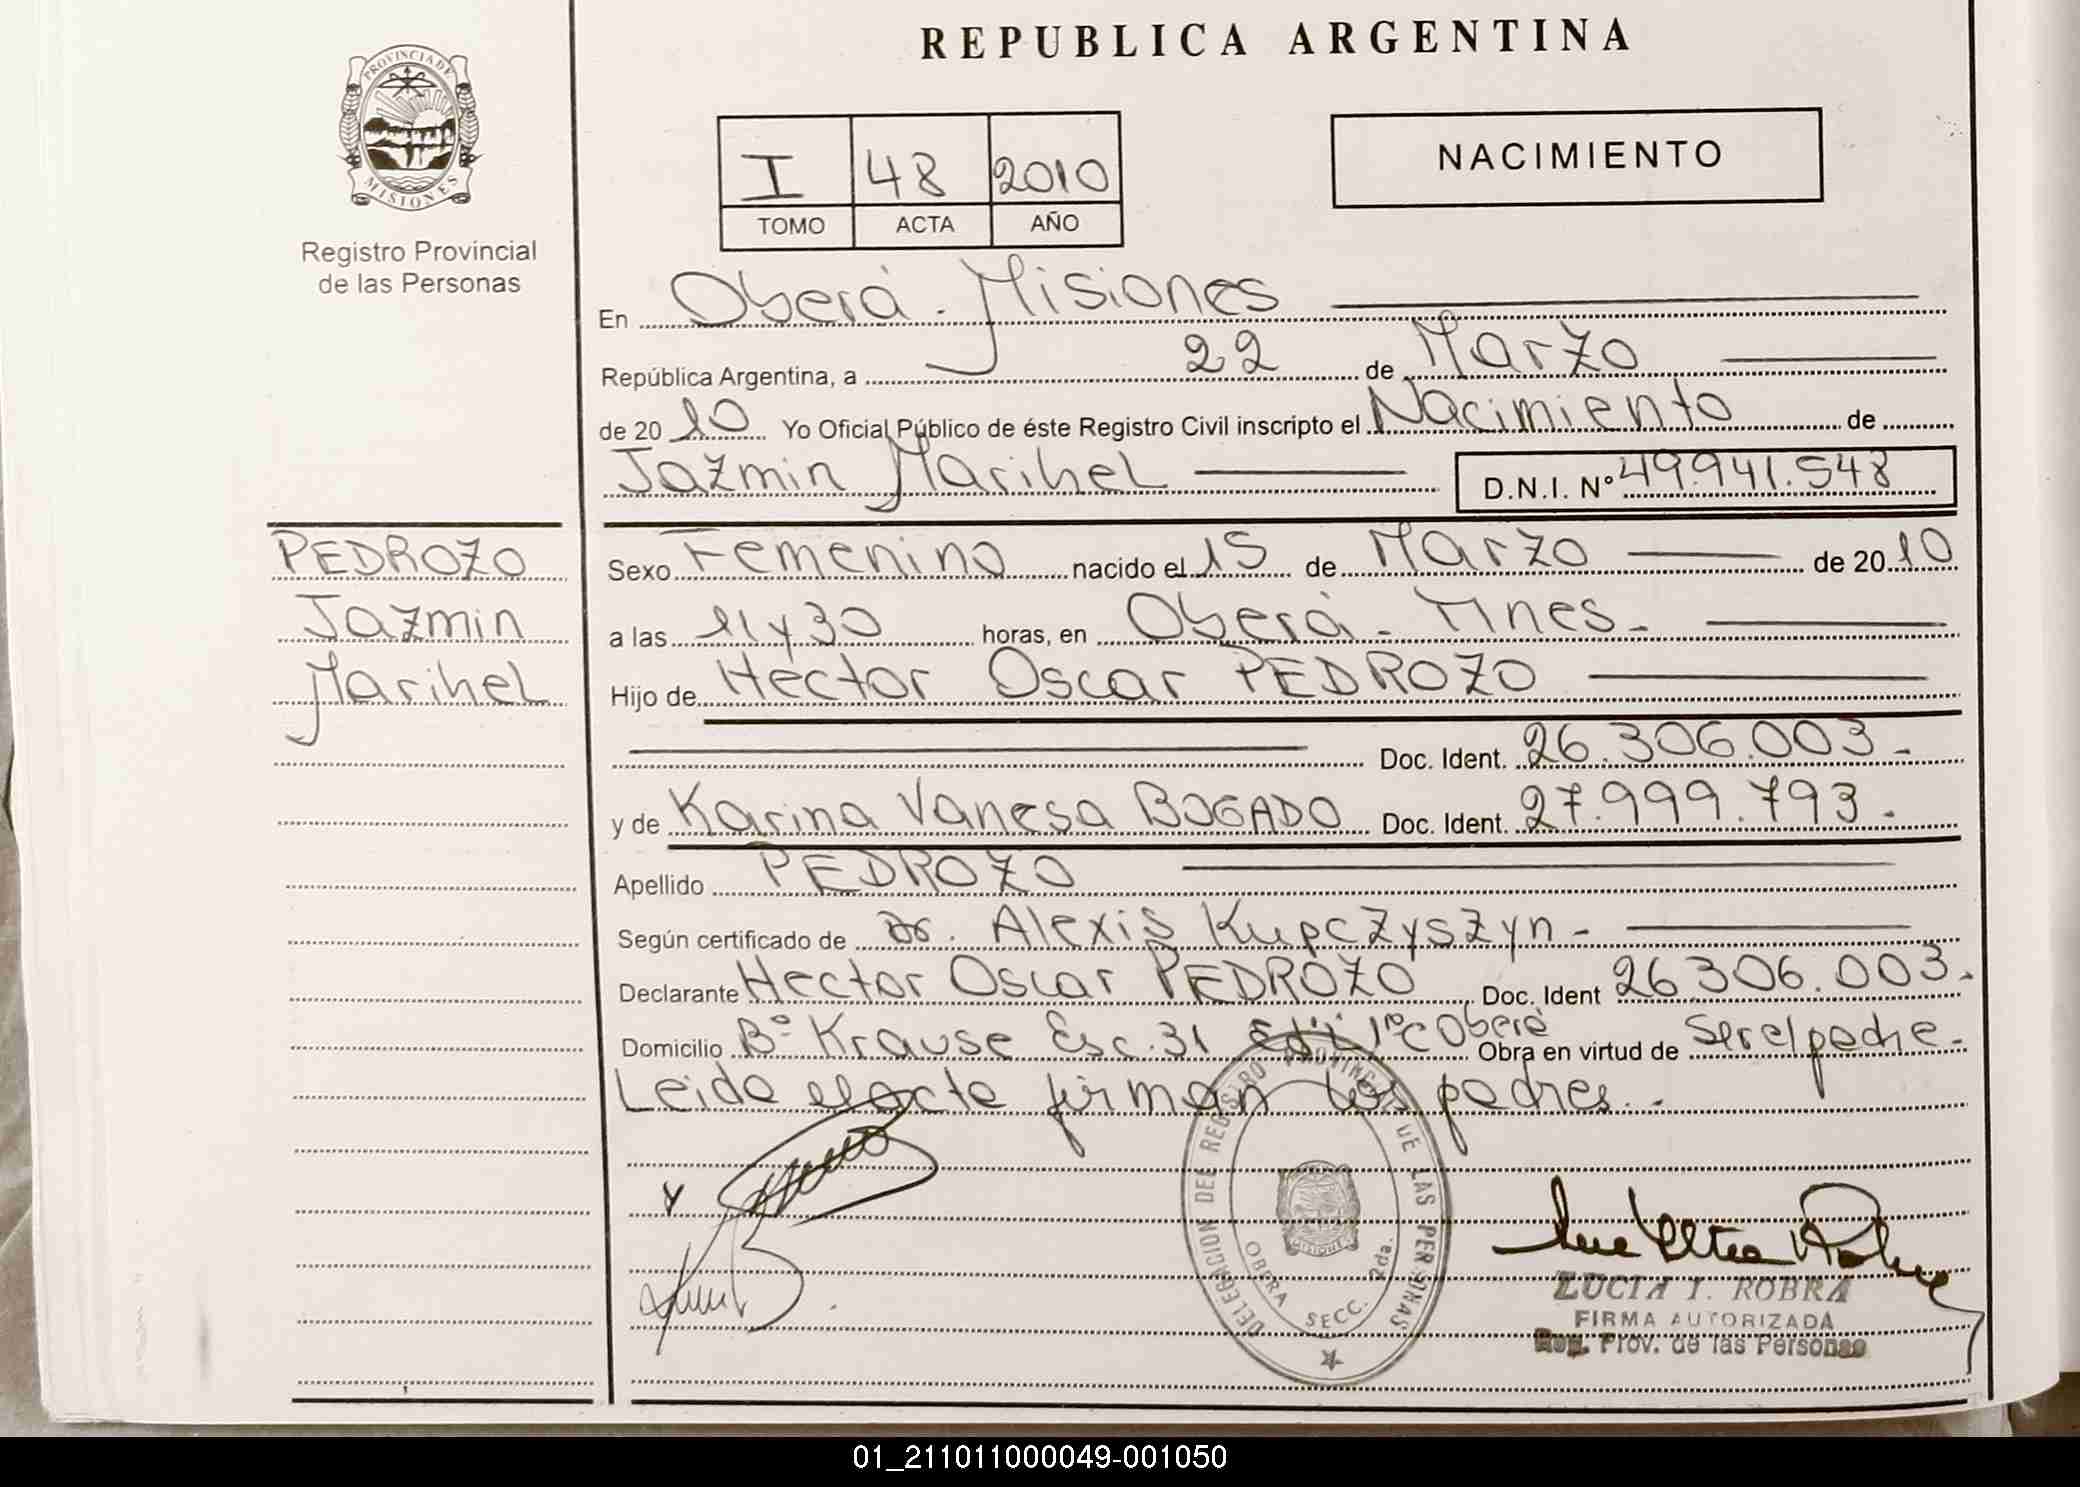 REPUBLICA ARGENTINA
PROVINCIA DE
MISIONES
Registro Provincial
de las Personas
I 48 2010
TOMO ACTA AÑO
NACIMIENTO
En Oberá - Misiones
República Argentina, a 22 de Marzo
de 2010 Yo Oficial Público de éste Registro Civil inscripto el Nacimiento de
Jazmin Marihel D.N.I. Nº 49.941.548
PEDROZO
Jazmin
Marihel
Sexo Femenino nacido el 15 de Marzo de 2010
a las 11 y 30 horas, en Oberá - Mnes -
Hijo de Hector Oscar PEDROZO
Doc. Ident. 26.306.003.-
y de Karina Vanesa BOGADO Doc. Ident. 27.999.793.-
Apellido PEDROZO
Según certificado de Dr. Alexis Kupczyszyn -
Declarante Hector Oscar PEDROZO Doc. Ident 26306.003.
Domicilio Bº Krause Esc. 31 Oberá Obra en virtud de Ser el padre -
Leida el acta firman los padres.-
DELEGACION DEL REGISTRO PROVINCIAL DE LAS PERSONAS
OBERA SECC. 2da.
MISIONES
LUCIA I. ROBRA
FIRMA AUTORIZADA
Reg. Prov. de las Personas
01_211011000049-001050